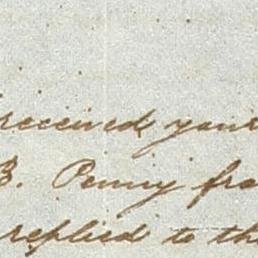 received your
B. Penny fro
replied to th